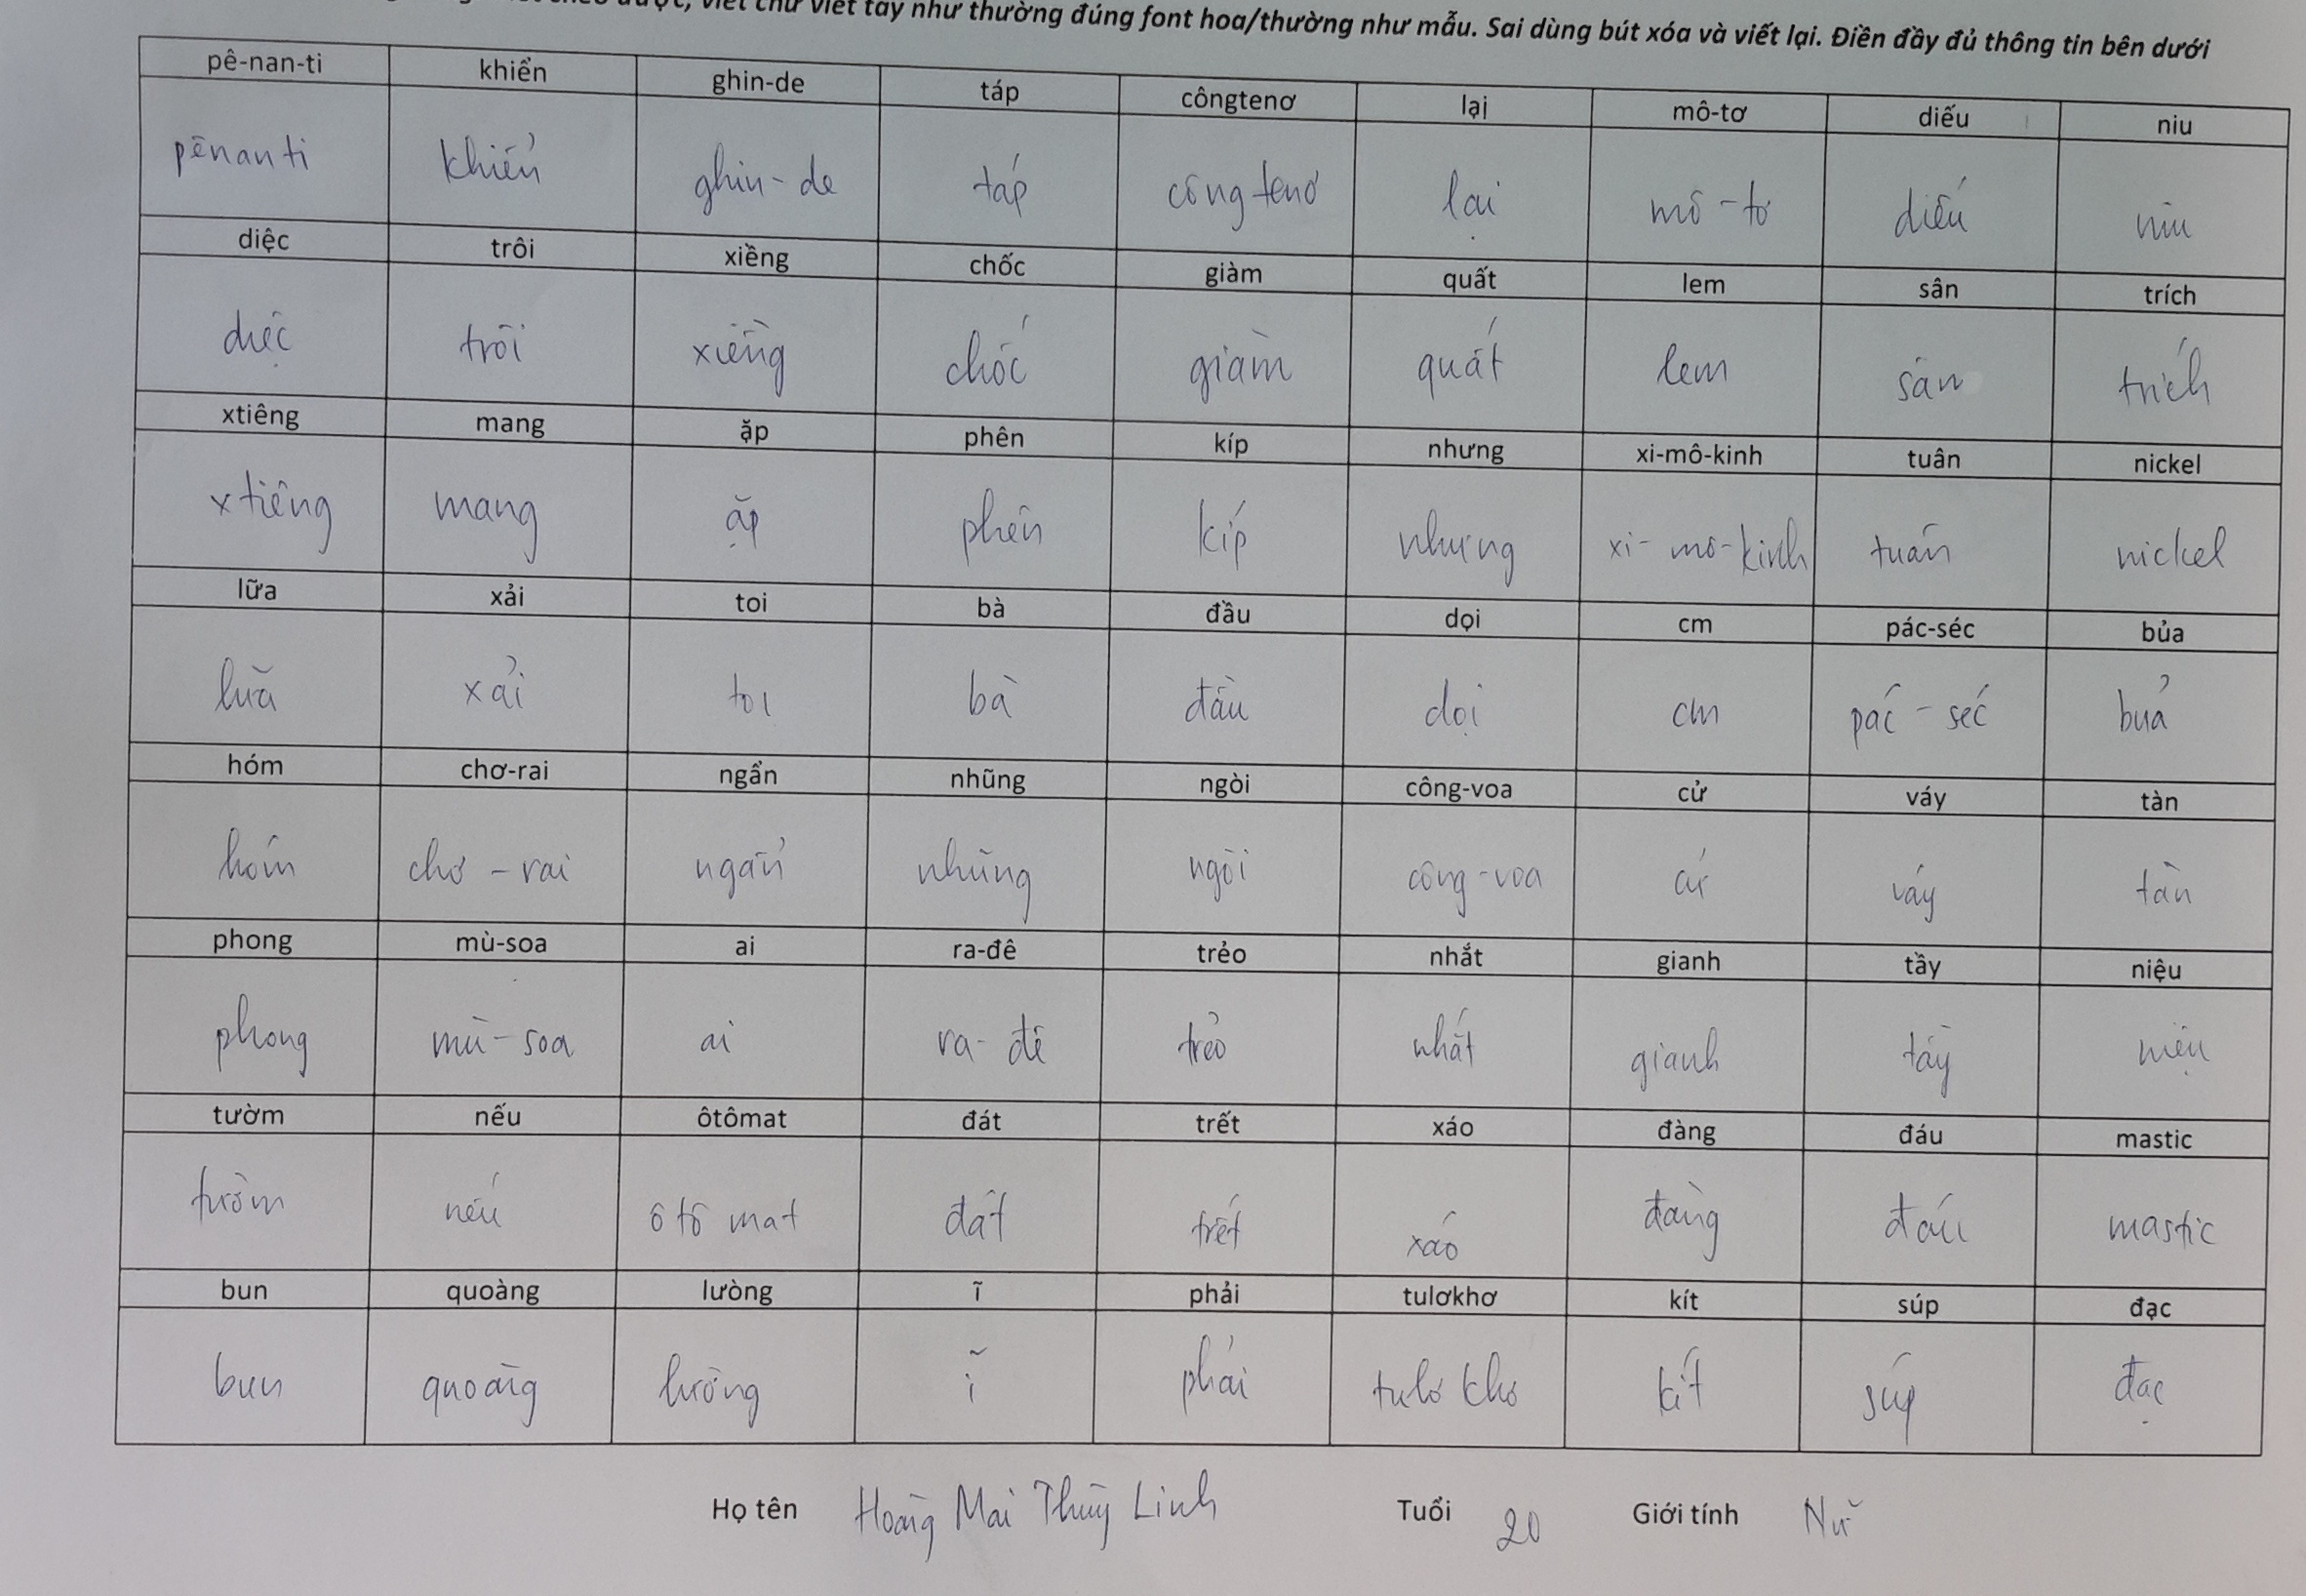 viết chữ viết tay như thường đúng font hoa/thường như mẫu. Sai dùng bút xóa và viết lại. Điền đầy đủ thông tin bên dưới
pê-nan-ti khiển ghin-de táp côngtenơ lại mô-tơ diếu niu
pênanti khiển ghin-de táp côngtenơ lại mô-tơ diếu niu
diệc trôi xiềng chốc giàm quất lem sân trích
diệc trôi xiềng chốc giàm quất lem sân trích
xtiêng mang ặp phên kíp nhưng xi-mô-kinh tuân nickel
xtiêng mang ặp phên kíp nhưng xi-mô-kinh tuân nickel
lữa xải toi bà đầu dọi cm pác-séc bủa
lữa xải toi bà đầu dọi cm pác-séc bủa
hóm chơ-rai ngẩn nhũng ngòi công-voa cử váy tàn
hóm chơ-rai ngẩn nhũng ngòi công-voa cử váy tàn
phong mù-soa ai ra-đê trẻo nhắt gianh tầy niệu
phong mù-soa ai ra-đê trẻo nhắt gianh tầy niệu
tườm nếu ôtômat đát trết xáo đàng đáu mastic
tườm nếu ôtômat đát trết xáo đàng đáu mastic
bun quoàng lưòng ĩ phải tulơkhơ kít súp đạc
bun quoàng lường ĩ phải tulơ khơ kít súp đạc
Họ tên Hoàng Mai Thùy Linh Tuổi 20 Giới tính Nữ